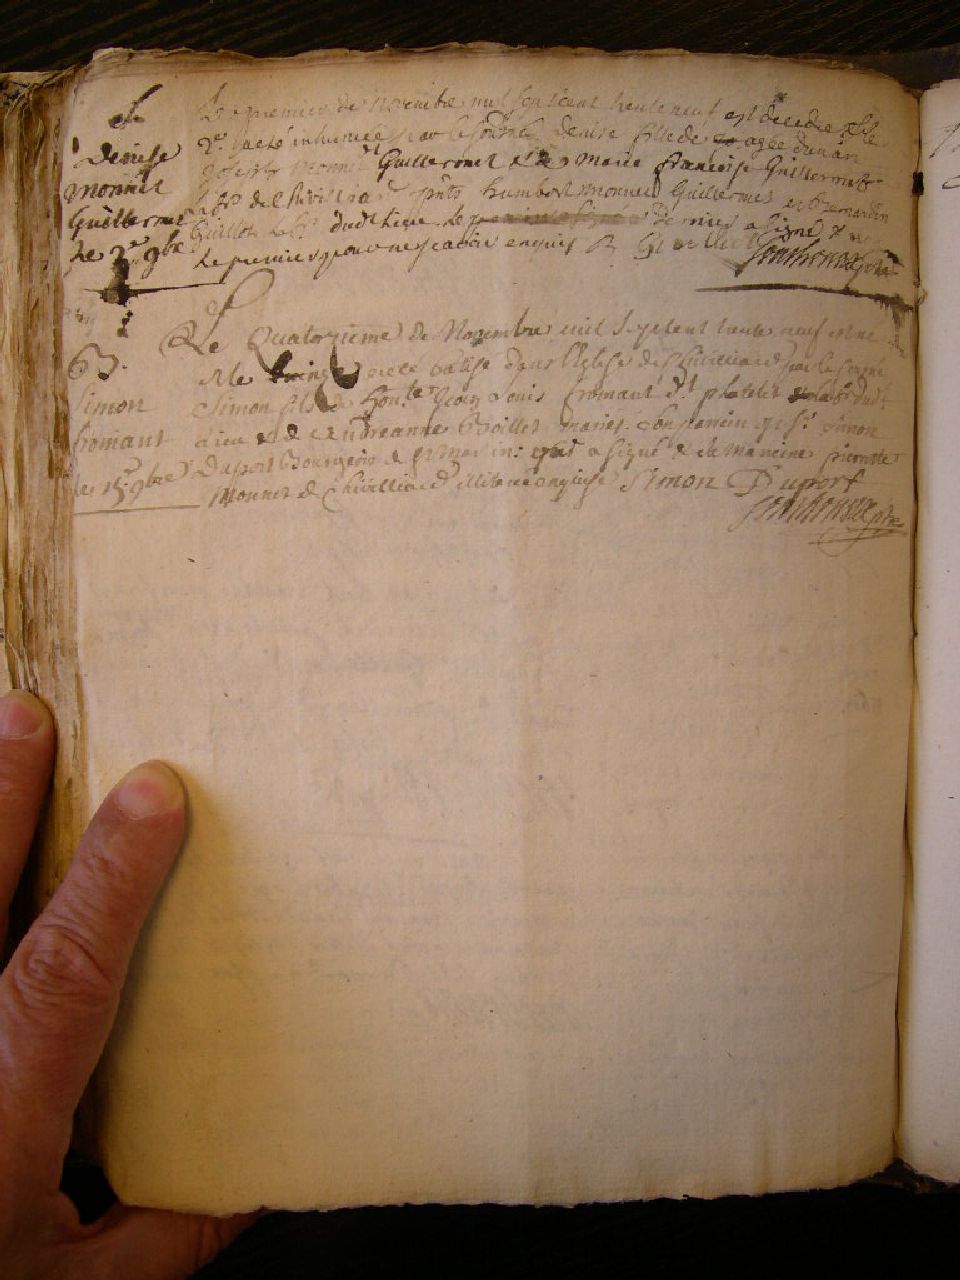 S.
Denise
Monnet
Guillermet
Le 2e 9bre
Le premier de Novembre mil sept cent trente neuf est decedee et le
2e a eté inhumée par le soussigné denise fille de agée d'un an
joseph Monnet dt Guillermet et de Marie françoise Guillermet
de Chivilliard pnts humbert monnet Guillermet et bernardin
Guillot dudt lieu le dernier a signé et
Le premier pour ne scavoir enquis
B.
Simon
fromant
le 15e 9bre
Le Quatorzième de Novembre mil sept cent trente neuf est né
et le quinze a eté batisé dans l'Eglise de Chivilliard par le soussigné
Simon fils de hon.te Jean Louis fromant dt platelet et hab. dudt
Lieu et de andreanne Boillet mariés. Son parrain Simon
Duport Bourgeois de qui a signé et la Maraine pierrette
Monnet de Chivilliard illiterée enquise Simon Duport